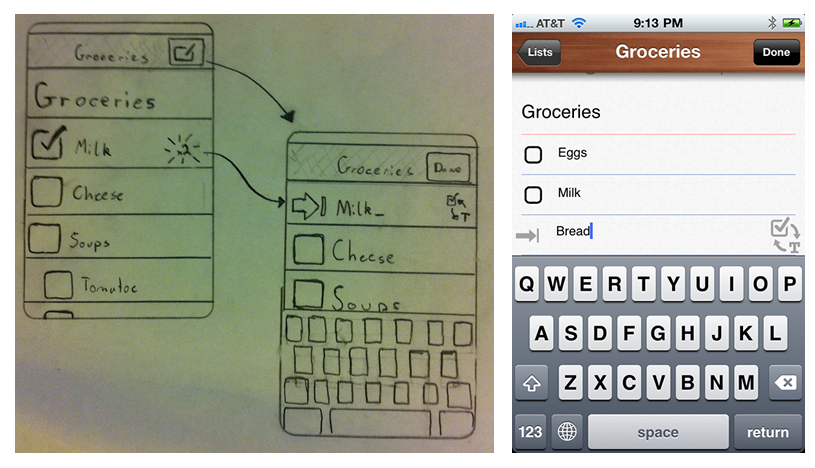 Groceries
Groceries
Milk 2
Cheese
Soups
Tomatoe
Groceries Done
Milk_ T
Cheese
Soups
AT&T 9:13 PM
Lists Groceries Done
Groceries
Eggs
Milk
Bread T
Q W E R T Y U I O P
A S D F G H J K L
Z X C V B N M
123 space return